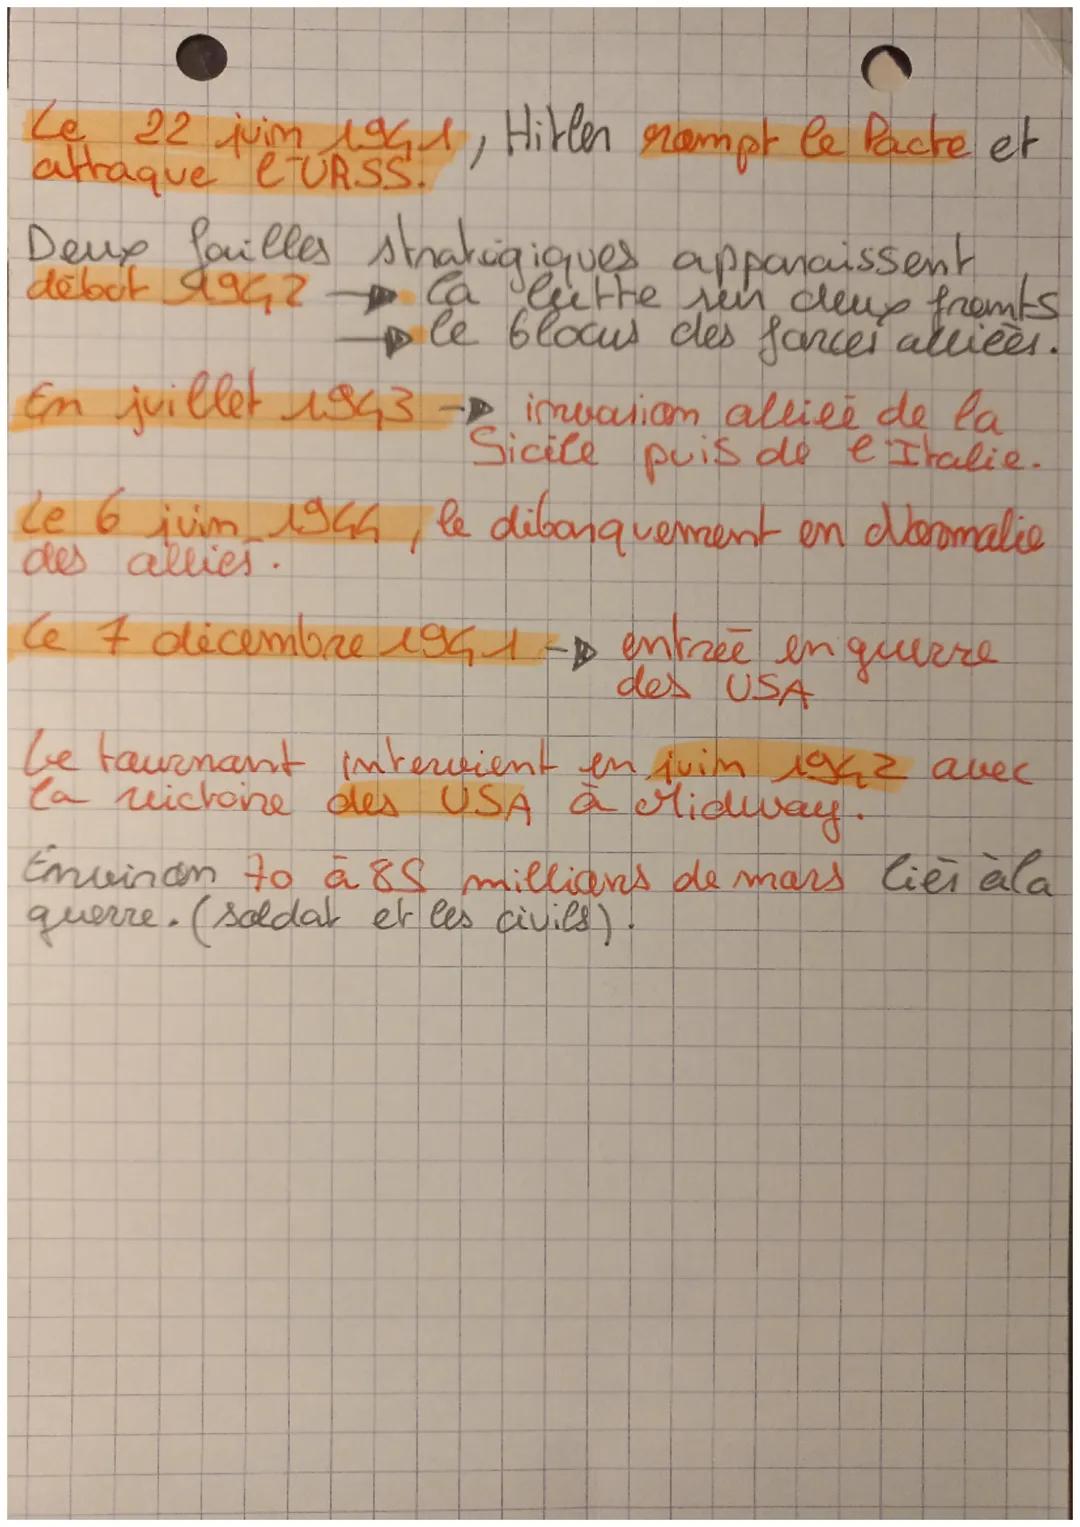 Le 22 juin 1941, Hitler rompt le Pacte et
attaque l'URSS.
Deux failles stratégiques apparaissent
début 1942 → la lutte sur deux fronts
→ le blocus des forces alliées.
En juillet 1943 → invasion alliée de la
Sicile puis de l'Italie.
Le 6 juin 1944, le débarquement en Normalie
des alliés.
Le 7 décembre 1941 → entrée en guerre
des USA
Le tournant intervient en juin 1942 avec
la victoire des USA à Midway.
Environ 70 à 85 millions de mors liés à la
guerre. (soldat et les civils).